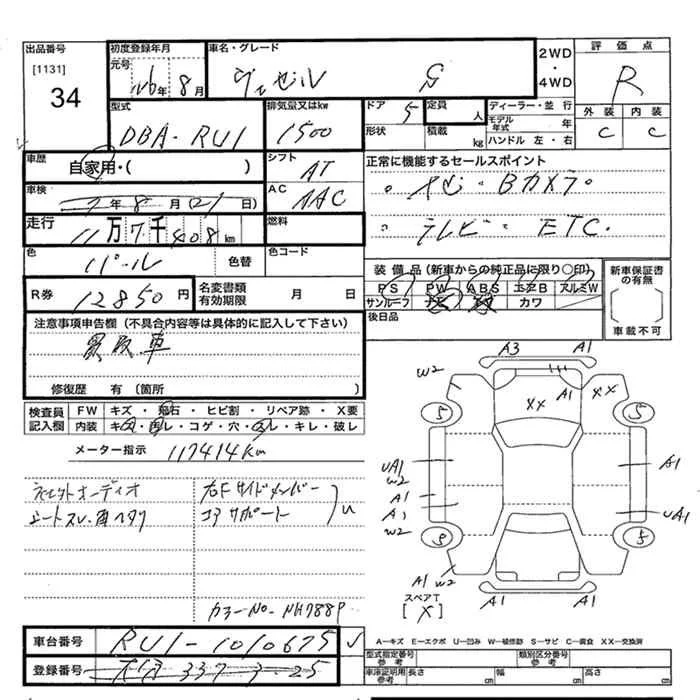 出品番号
[1131]
34
初度登録年月
元号
H26年 8月
車名・グレード
ヴェゼル G
2WD
・
4WD
評価点
R
外装 内装
C C
型式
DBA-RU1
排気量又はkw
1500
ドア
5
定員
人
形状
積載
kg
ディーラー・並行
モデル年式
年
ハンドル 左・右
車歴
自家用・( )
シフト
AT
AC
AAC
正常に機能するセールスポイント
・ナビ・Bカメラ・
・テレビ・ETC.
車検
7年8月(21日)
走行
11万7千408km
燃料
色
パール
色替
色コード
装備品(新車からの純正品に限り○印)
PS PW ABS エアB アルミW
サンルーフ ナビ カワ
後日品
新車保証書の有無
[ ]
車載不可
R券
12850円
名変書類
有効期限
月 日
注意事項申告欄(不具合内容等は具体的に記入して下さい)
買取車
修復歴 有(箇所 )
検査員
記入欄
FW
キズ・飛石・ヒビ割・リペア跡・X要
内装
キズ・汚レ・コゲ・穴・スレ・キレ・破レ
メーター指示
117414km
右Fサイドメンバー
コアサポート
U
カラーNo- NH788P
A3 A1
W2
A1
XX
XX
5 5
UA1
W2
A1
A1
A1
W2
UA1
5 5
A1 W2
スペアT
[X]
A1 A1
A—キズ E—エクボ U—凹み W—補修跡 S—サビ C—腐食 XX—交換済
車台番号
RU1-1010675
登録番号
型式指定番号
参考
類別区分番号
参考
車庫証明用
参考
長さ
cm
幅
cm
高さ
cm